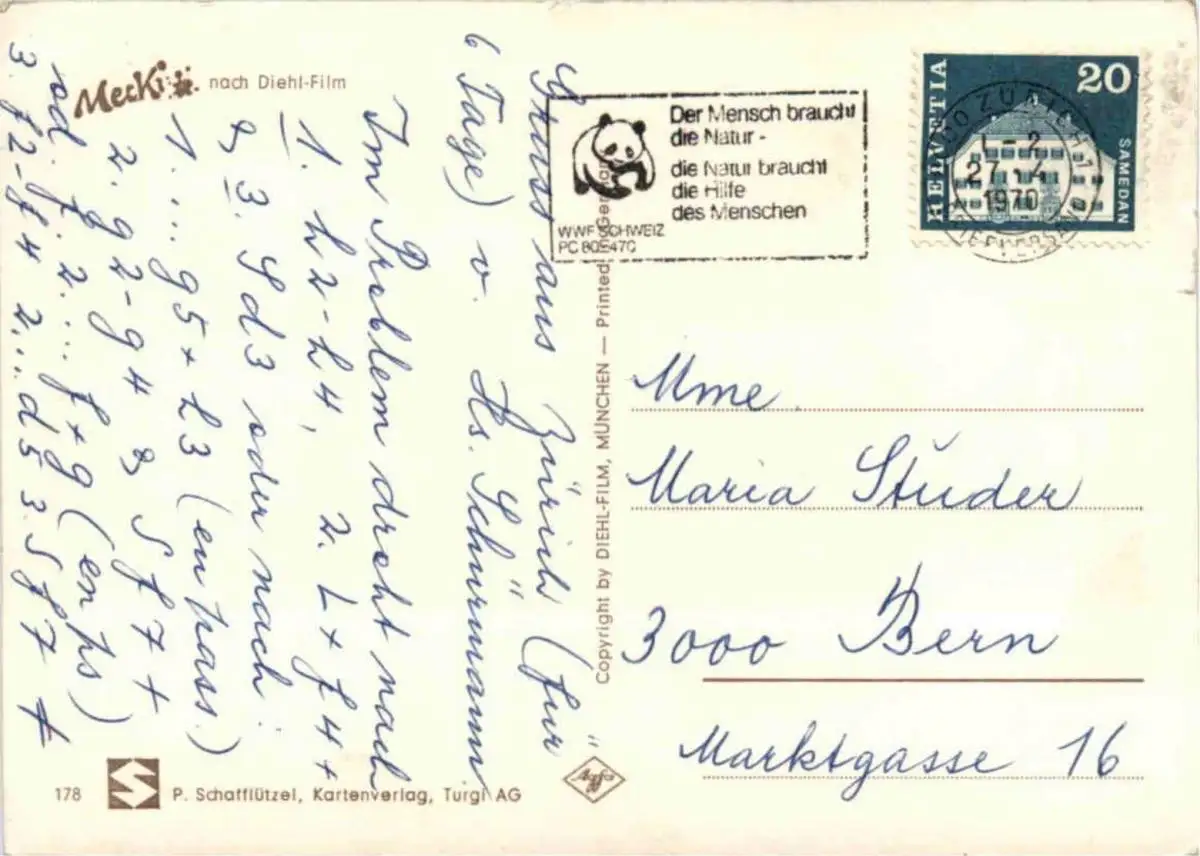 Mecki nach Diehl-Film
Gruss aus Zürich (für
6 Tage) v. Hs. Schürmann.
Im Problem droht nach
1. h2-h4, 2. L×f4+
& 3. Sd3 oder nach
1.... g5×h3 (en pass.)
2. g2-g4 & Sf7+
od. f. 2.... f×g (en ps)
3. f2-f4 2...d5 3 Sf7 ≠
Der Mensch braucht
die Natur -
die Natur braucht
die Hilfe
des Menschen
WWF SCHWEIZ
PC 80-470
HELVETIA
20
SAMEDAN
ZÜRICH 1
27.-4
1970
BRIEFVERSAND
Copyright by DIEHL-FILM, MÜNCHEN — Printed in Germany
Mme.
Maria Studer
3000 Bern
Marktgasse 16
178
S
P. Schafflützel, Kartenverlag, Turgi AG
Agfa